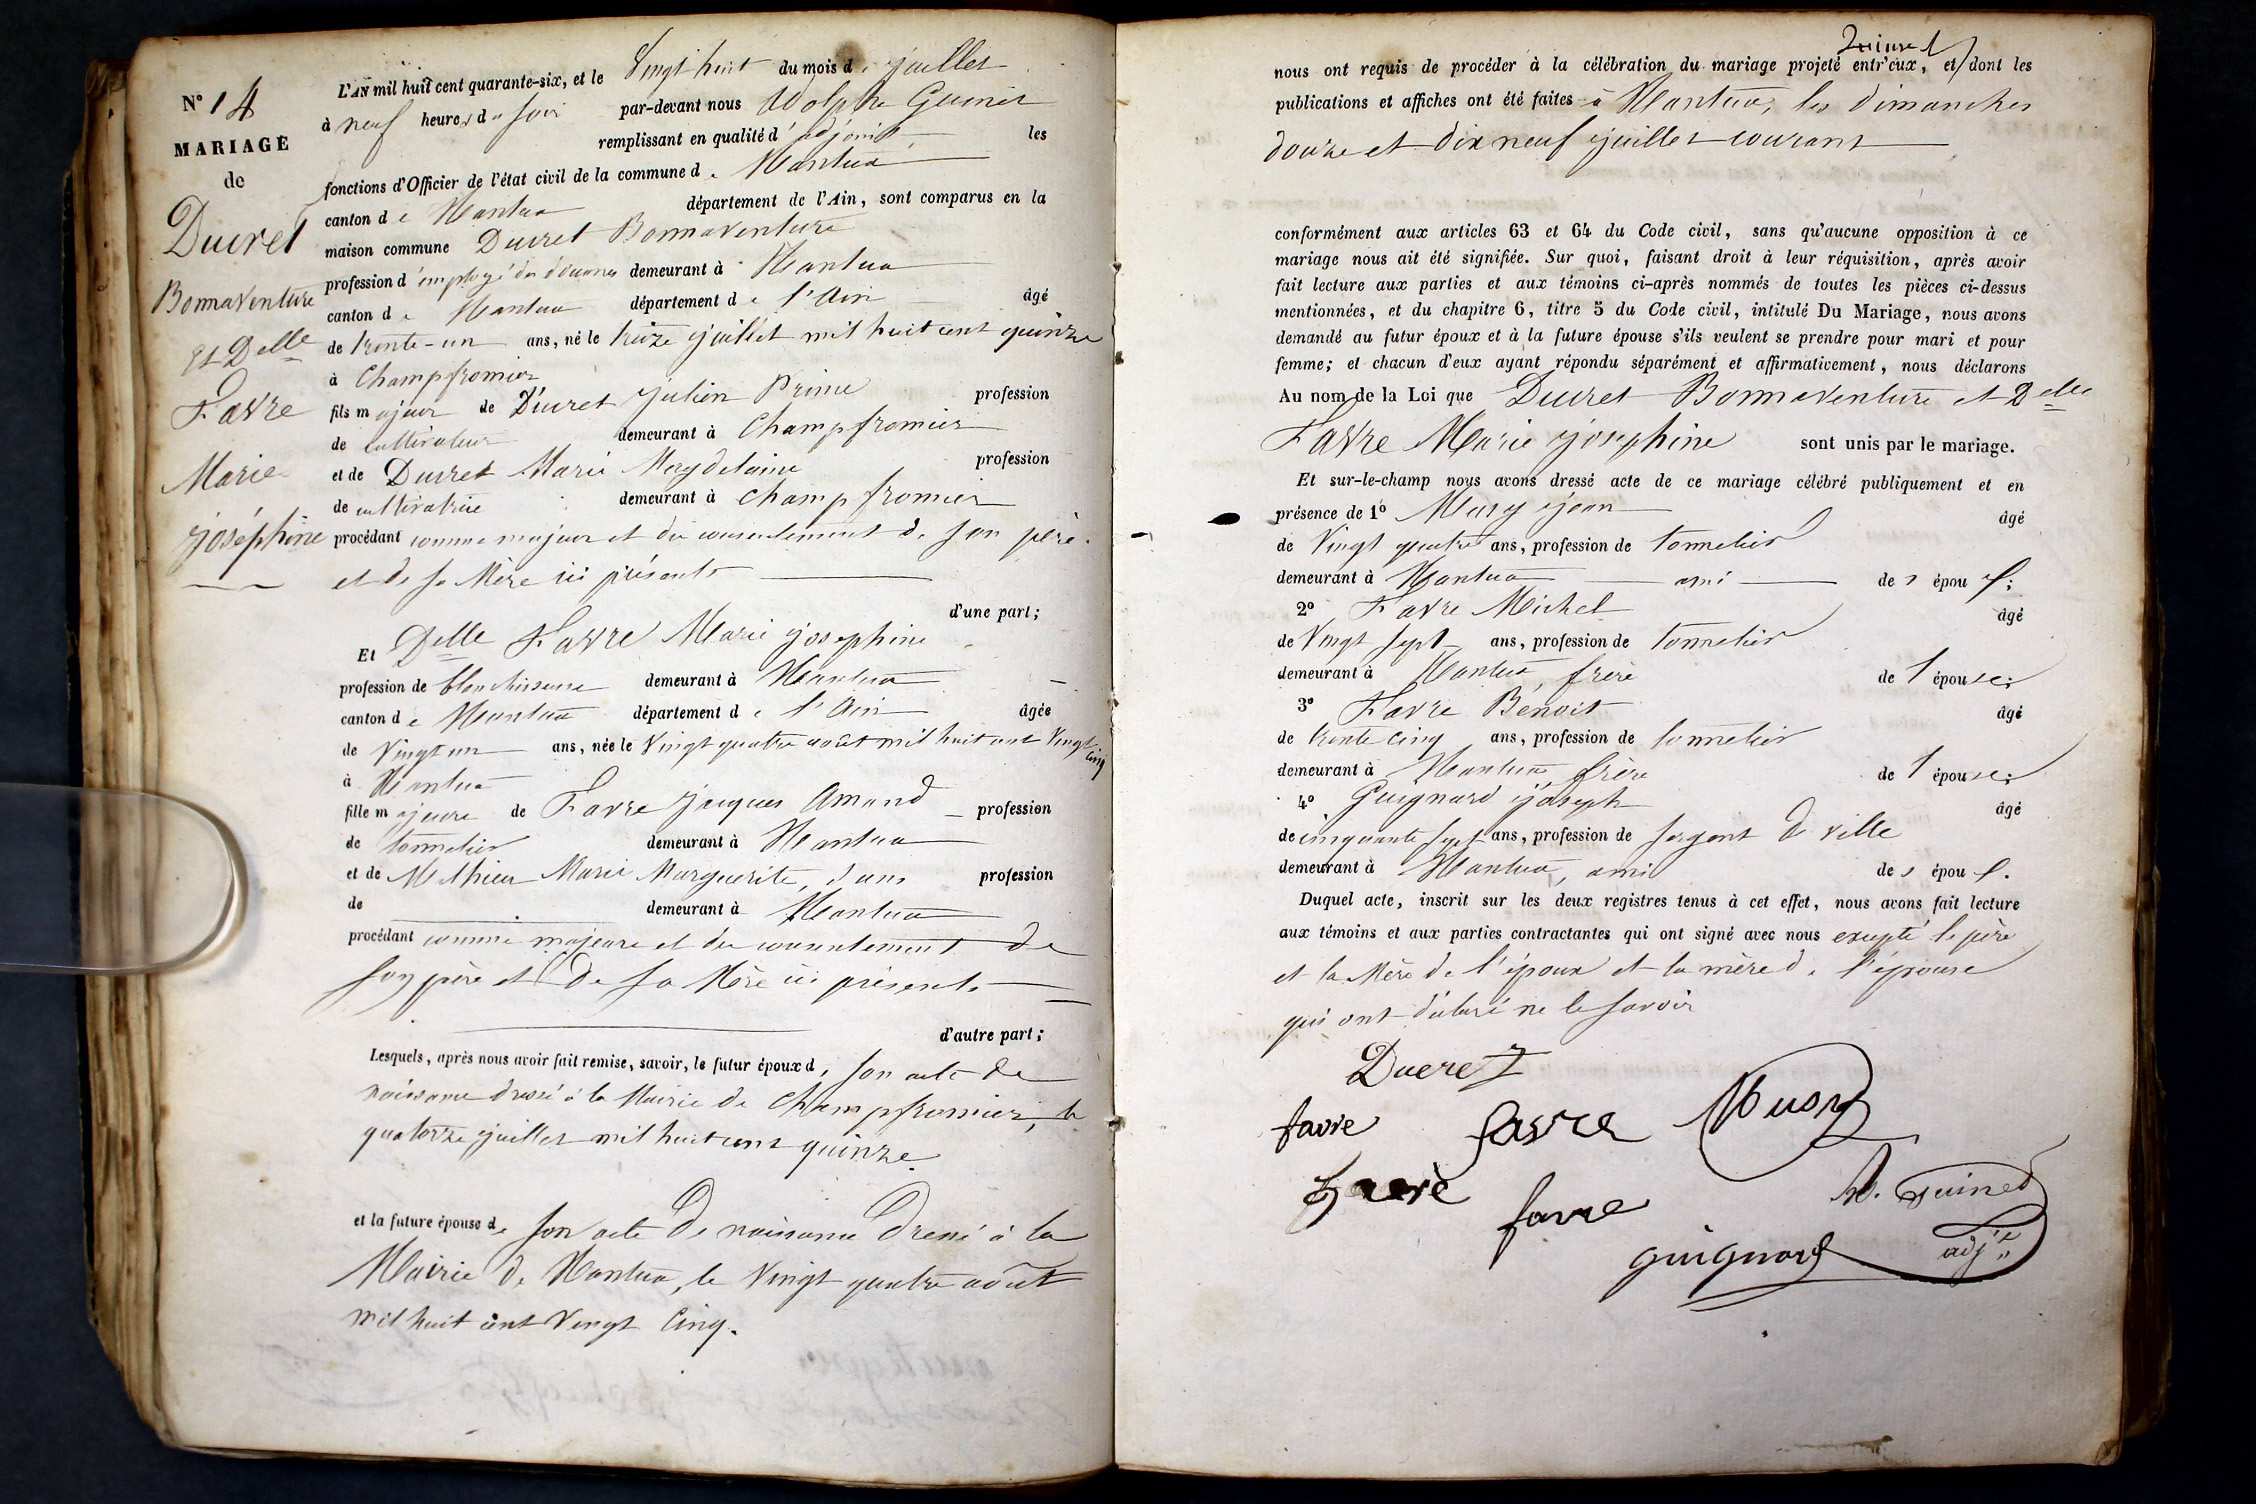 N° 14
MARIAGE
de
Ducret
Bonnaventure
Et Delle
Favre
Marie
joséphine
L'AN mil huit cent quarante-six, et le Vingt huit du mois de juillet
à neuf heures du soir par-devant nous Adolphe Guinet
remplissant en qualité d'adjoint les
fonctions d'Officier de l'état civil de la commune de Nantua
canton de Nantua département de l'Ain, sont comparus en la
maison commune Ducret Bonnaventure
profession d'employé des douanes demeurant à Nantua
canton de Nantua département de l'Ain âgé
de trente-un ans, né le treize juillet mil huit cent quinze
à Champfromier
fils majeur de Ducret julien Prime profession
de cultivateur demeurant à Champfromier
et de Ducret Marie Magdelaine profession
de cultivatrice demeurant à Champfromier
procédant comme majeur et du consentement de son père
et de sa Mère ici présents
d'une part;
Et Delle Favre Marie josephine
profession de blanchisseuse demeurant à Nantua
canton de Nantua département de l'Ain âgée
de Vingt un ans, née le Vingt quatre août mil huit cent Vingt cinq
à Nantua
fille majeure de Favre jacques Amand profession
de tonnelier demeurant à Nantua
et de Mathieu Marie Marguerite, sans profession
de demeurant à Nantua
procédant comme majeure et du consentement de
son père et de sa Mère ici présents
d'autre part;
Lesquels, après nous avoir fait remise, savoir, le futur époux de son acte de
naissance dressé à la Mairie de Champfromier, le
quatorze juillet mil huit cent quinze
et la future épouse de son acte de naissance dressé à la
Mairie de Nantua, le Vingt quatre août
mil huit cent Vingt Cinq.
nous ont requis de procéder à la célébration du mariage projeté entr'eux, et dont les
publications et affiches ont été faites à Nantua, les dimanches
douze et dix neuf juillet courant
conformément aux articles 63 et 64 du Code civil, sans qu'aucune opposition à ce
mariage nous ait été signifiée. Sur quoi, faisant droit à leur réquisition, après avoir
fait lecture aux parties et aux témoins ci-après nommés de toutes les pièces ci-dessus
mentionnées, et du chapitre 6, titre 5 du Code civil, intitulé Du Mariage, nous avons
demandé au futur époux et à la future épouse s'ils veulent se prendre pour mari et pour
femme; et chacun d'eux ayant répondu séparément et affirmativement, nous déclarons
Au nom de la Loi que Ducret Bonnaventure et Delle
Favre Marie josephine sont unis par le mariage.
Et sur-le-champ nous avons dressé acte de ce mariage célébré publiquement et en
présence de 1° jean âgé
de Vingt quatre ans, profession de tonnelier
demeurant à Nantua ami des époux;
2° Favre Michel âgé
de Vingt sept ans, profession de tonnelier
demeurant à Nantua, frère de l'épouse;
3° Favre Benoit âgé
de trente cinq ans, profession de tonnelier
demeurant à Nantua, frère de l'épouse;
4° Guignard joseph âgé
de cinquante sept ans, profession de sergent de ville
demeurant à Nantua, ami des époux.
Duquel acte, inscrit sur les deux registres tenus à cet effet, nous avons fait lecture
aux témoins et aux parties contractantes qui ont signé avec nous excepté le père
et la Mère de l'époux et la mère de l'épouse
qui ont déclaré ne le savoir
Ducret
favre favre
favre favre A. Guinet
guignard adjt